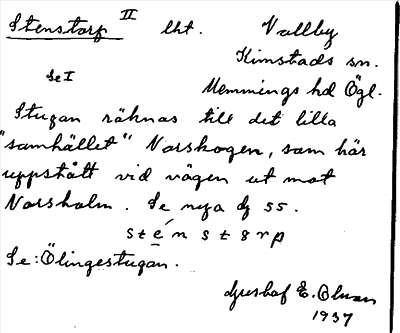 Stenstorp II lht. Vallby
Kimstads sn.
Se I
Memmings hd Ögl.
Stugan räknas till det lilla
"samhället" Norskogen, som här
uppstått vid vägen ut mot
Norsholm. Se nya dj 55.
Se: Ölingestugan.
Gustaf E. Olsson
1937